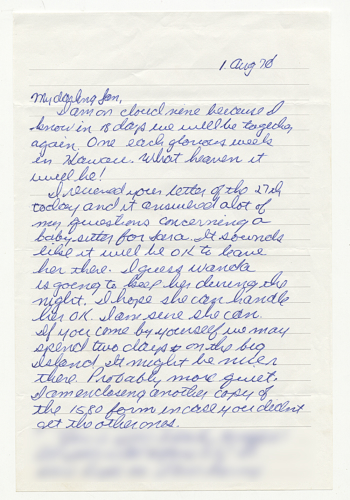 1 Aug 70
My darling Jan,
I am on cloud nine because I
know in 18 days we will be together
again. One each glorious week
in Hawaii. What heaven it
will be!
I received your letter of the 27th
today and it answered a lot of
my questions concerning a
baby sitter for Kara. It sounds
like it will be OK to leave
her there. I guess Wanda
is going to keep her during the
night. I hope she can handle
her OK. I am sure she can.
If you come by yourself we may
spend two days on the big
Island. It might be nicer
there. Probably more quiet.
I am enclosing another copy of
the 1580 form in case you didn't
get the other ones.